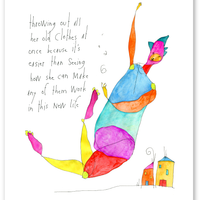 throwing out all
her old clothes at
once because it's
easier than seeing
how she can make
any of them work
in this new life